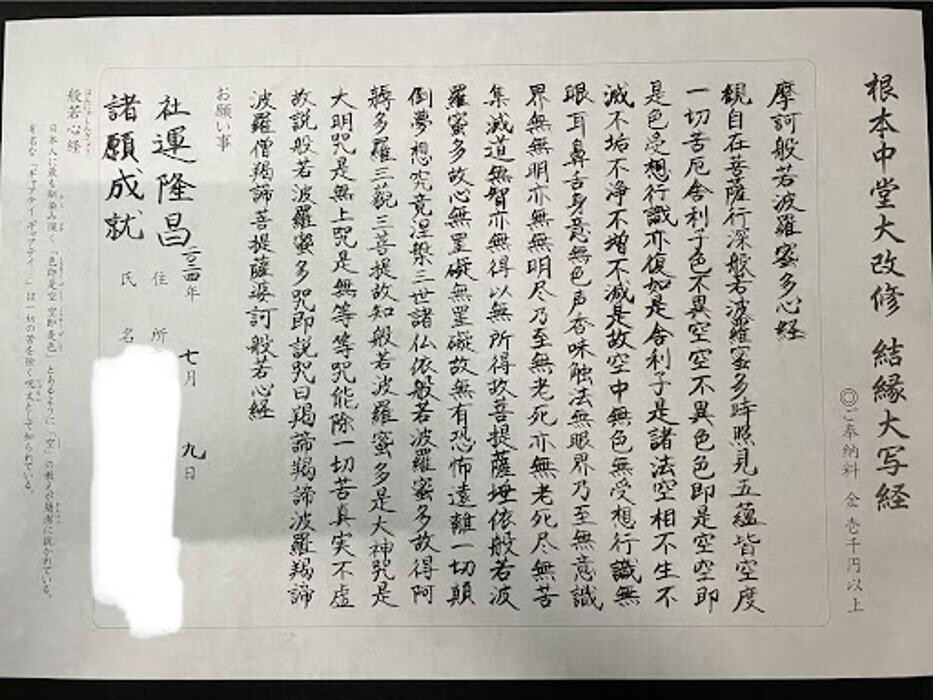 根本中堂大改修 結縁大写経
◎ご奉納料 金 壱千円以上
摩訶般若波羅蜜多心経
観自在菩薩行深般若波羅蜜多時照見五蘊皆空度
一切苦厄舎利子色不異空空不異色色即是空空即
是色受想行識亦復如是舎利子是諸法空相不生不
滅不垢不浄不増不減是故空中無色無受想行識無
眼耳鼻舌身意無色声香味触法無眼界乃至無意識
界無無明亦無無明尽乃至無老死亦無老死尽無苦
集滅道無智亦無得以無所得故菩提薩埵依般若波
羅蜜多故心無罣礙無罣礙故無有恐怖遠離一切顛
倒夢想究竟涅槃三世諸仏依般若波羅蜜多故得阿
耨多羅三藐三菩提故知般若波羅蜜多是大神呪是
大明呪是無上呪是無等等呪能除一切苦真実不虚
故説般若波羅蜜多呪即説呪曰羯諦羯諦波羅羯諦
波羅僧羯諦菩提薩婆訶般若心経
お願い事
社運隆昌
諸願成就
二〇二四年 七月 九日
住 所
氏 名
般若心経
はんにゃしんぎょう
日本人に最も馴染み深く「色即是空 空即是色」とあるように「空」の教えが簡潔に説かれている。
有名な「ギャアテイ ギャアテイ…」は一切の苦を除く呪文として知られている。